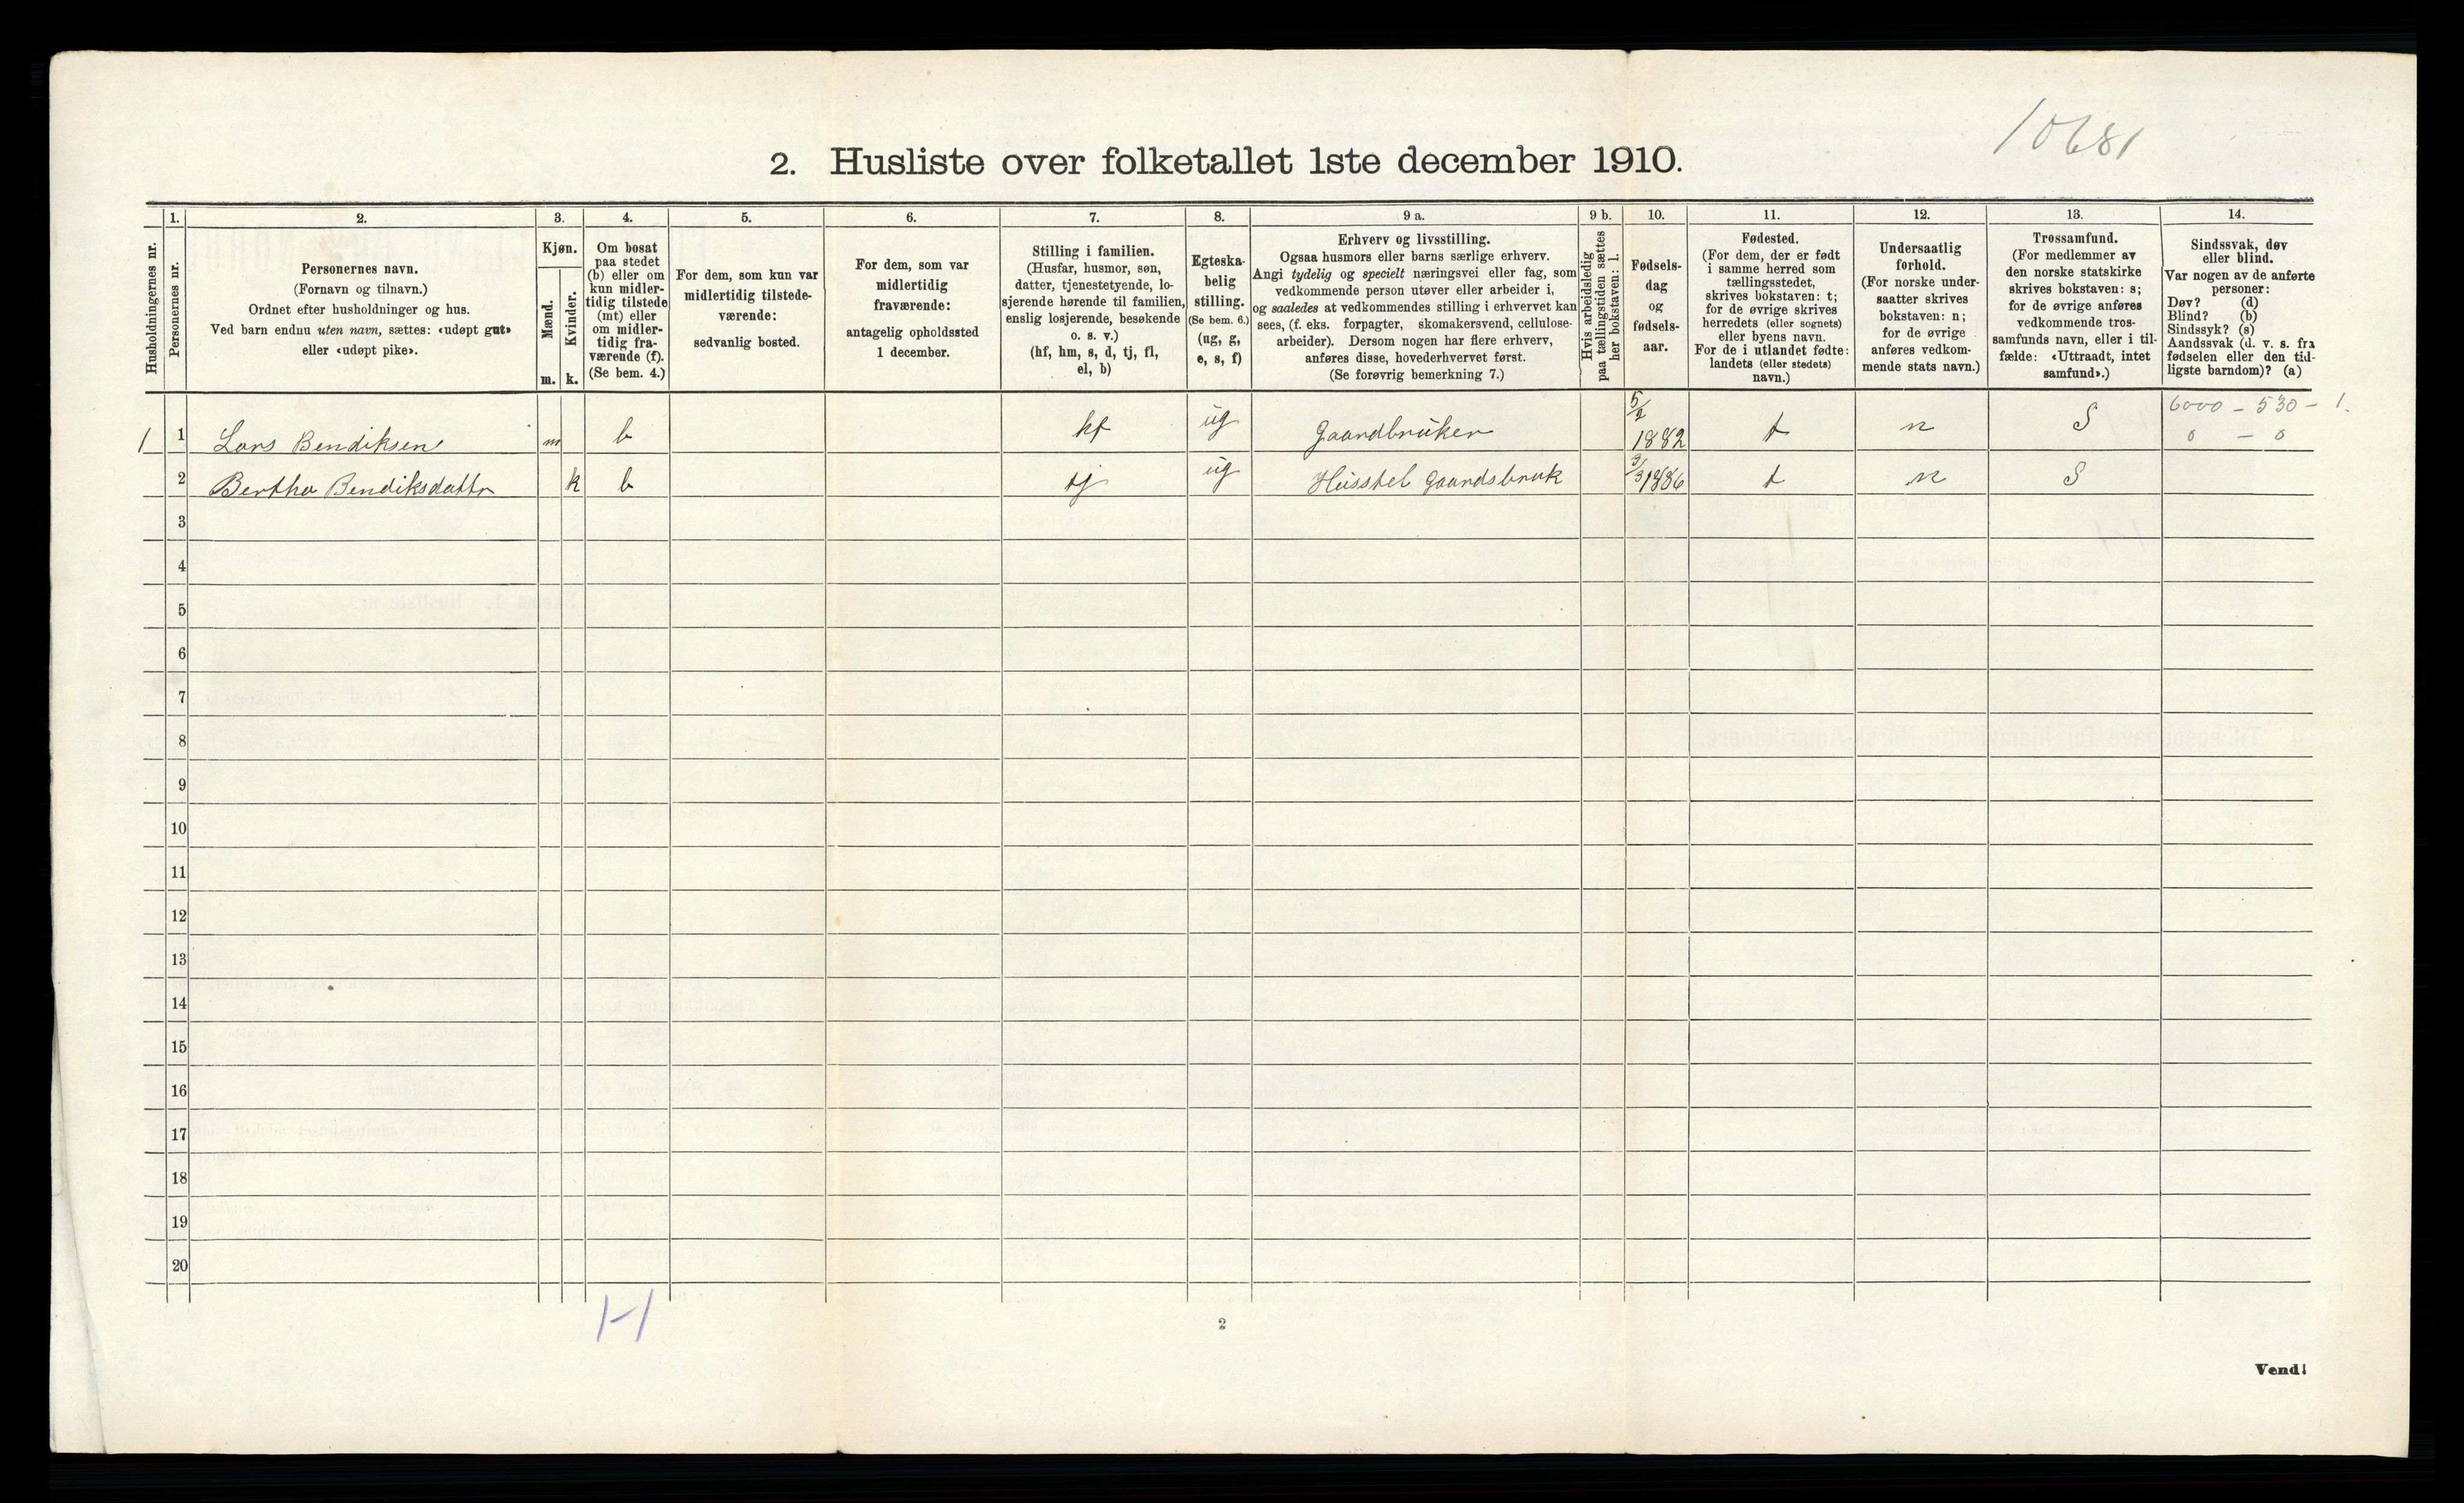 10681
2. Husliste over folketallet 1ste december 1910.
Husholdningernes nr.
1.
Personernes nr.
2.
Personernes navn.
(Fornavn og tilnavn.)
Ordnet efter husholdninger og hus.
Ved barn endnu uten navn, sættes: «udøpt gut»
eller «udøpt pike».
3.
Kjøn.
Mænd.
m.
Kvinder.
k.
4.
Om bosat
paa stedet
(b) eller om
kun midler-
tidig tilstede
(mt) eller
om midler-
tidig fra-
værende (f).
(Se bem. 4.)
5.
For dem, som kun var
midlertidig tilstede-
værende:
sedvanlig bosted.
6.
For dem, som var
midlertidig
fraværende:
antagelig opholdssted
1 december.
7.
Stilling i familien.
(Husfar, husmor, søn,
datter, tjenestetyende, lo-
sjerende hørende til familien,
enslig losjerende, besøkende
o. s. v.)
(hf, hm, s, d, tj, fl,
el, b)
8.
Egteska-
belig
stilling.
(Se bem. 6.)
(ug, g,
e, s, f)
9 a.
Erhverv og livsstilling.
Ogsaa husmors eller barns særlige erhverv.
Angi tydelig og specielt næringsvei eller fag, som
vedkommende person utøver eller arbeider i,
og saaledes at vedkommendes stilling i erhvervet kan
sees, (f. eks. forpagter, skomakersvend, cellulose-
arbeider). Dersom nogen har flere erhverv,
anføres disse, hovederhvervet først.
(Se forøvrig bemerkning 7.)
9 b.
Hvis arbeidsledig
paa tællingstiden sættes
her bokstaven: l.
10.
Fødsels-
dag
og
fødsels-
aar.
11.
Fødested.
(For dem, der er født
i samme herred som
tællingsstedet,
skrives bokstaven: t;
for de øvrige skrives
herredets (eller sognets)
eller byens navn.
For de i utlandet fødte:
landets (eller stedets)
navn.)
12.
Undersaatlig
forhold.
(For norske under-
saatter skrives
bokstaven: n;
for de øvrige
anføres vedkom-
mende stats navn.)
13.
Trossamfund.
(For medlemmer av
den norske statskirke
skrives bokstaven: s;
for de øvrige anføres
vedkommende tros-
samfunds navn, eller i til-
fælde: «Uttraadt, intet
samfund».)
14.
Sindssvak, døv
eller blind.
Var nogen av de anførte
personer:
Døv? (d)
Blind? (b)
Sindssyk? (s)
Aandssvak (d. v. s. fra
fødselen eller den tid-
ligste barndom)? (a)
1 1 Lars Bendiksen m b hf ug Gaardbruker 5/2 1882 t n S 6000 - 530 - 1.
0 - 0
2 Bertha Bendiksdattr k b tj ug Husstel Gaardsbruk 3/3 1886 t n S
3
4
5
6
7
8
9
10
11
12
13
14
15
16
17
18
19
20
1-1
2
Vend!